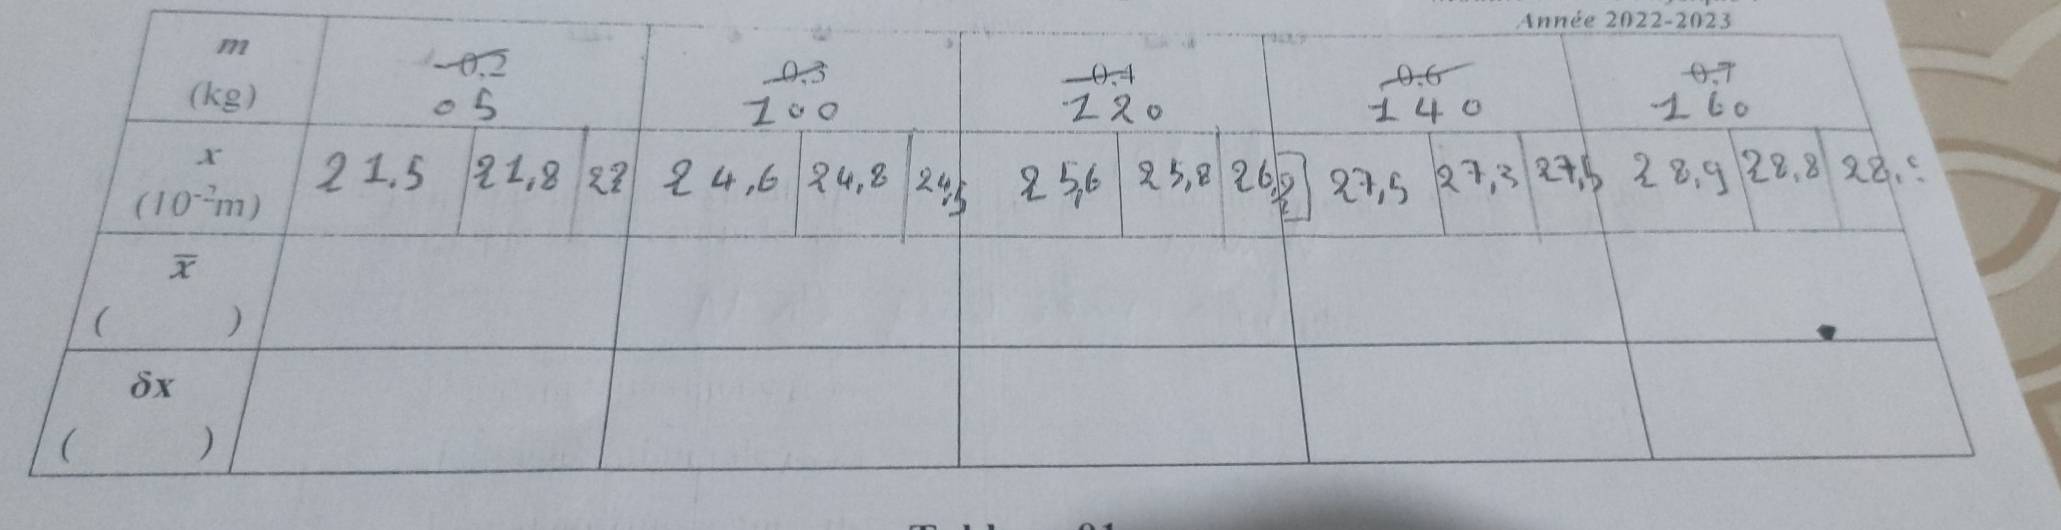 Année 2022-2023
m
(kg)
0.2 0.3 0.4 0.6 0.7
05 100 120 140 160
x
(10⁻²m)
21.5 21,8 22 24,6 24,8 24,5 25,6 25,8 26,2 27,5 27,3 27,5 28,9 28,8
x̄
( )
δx
( )